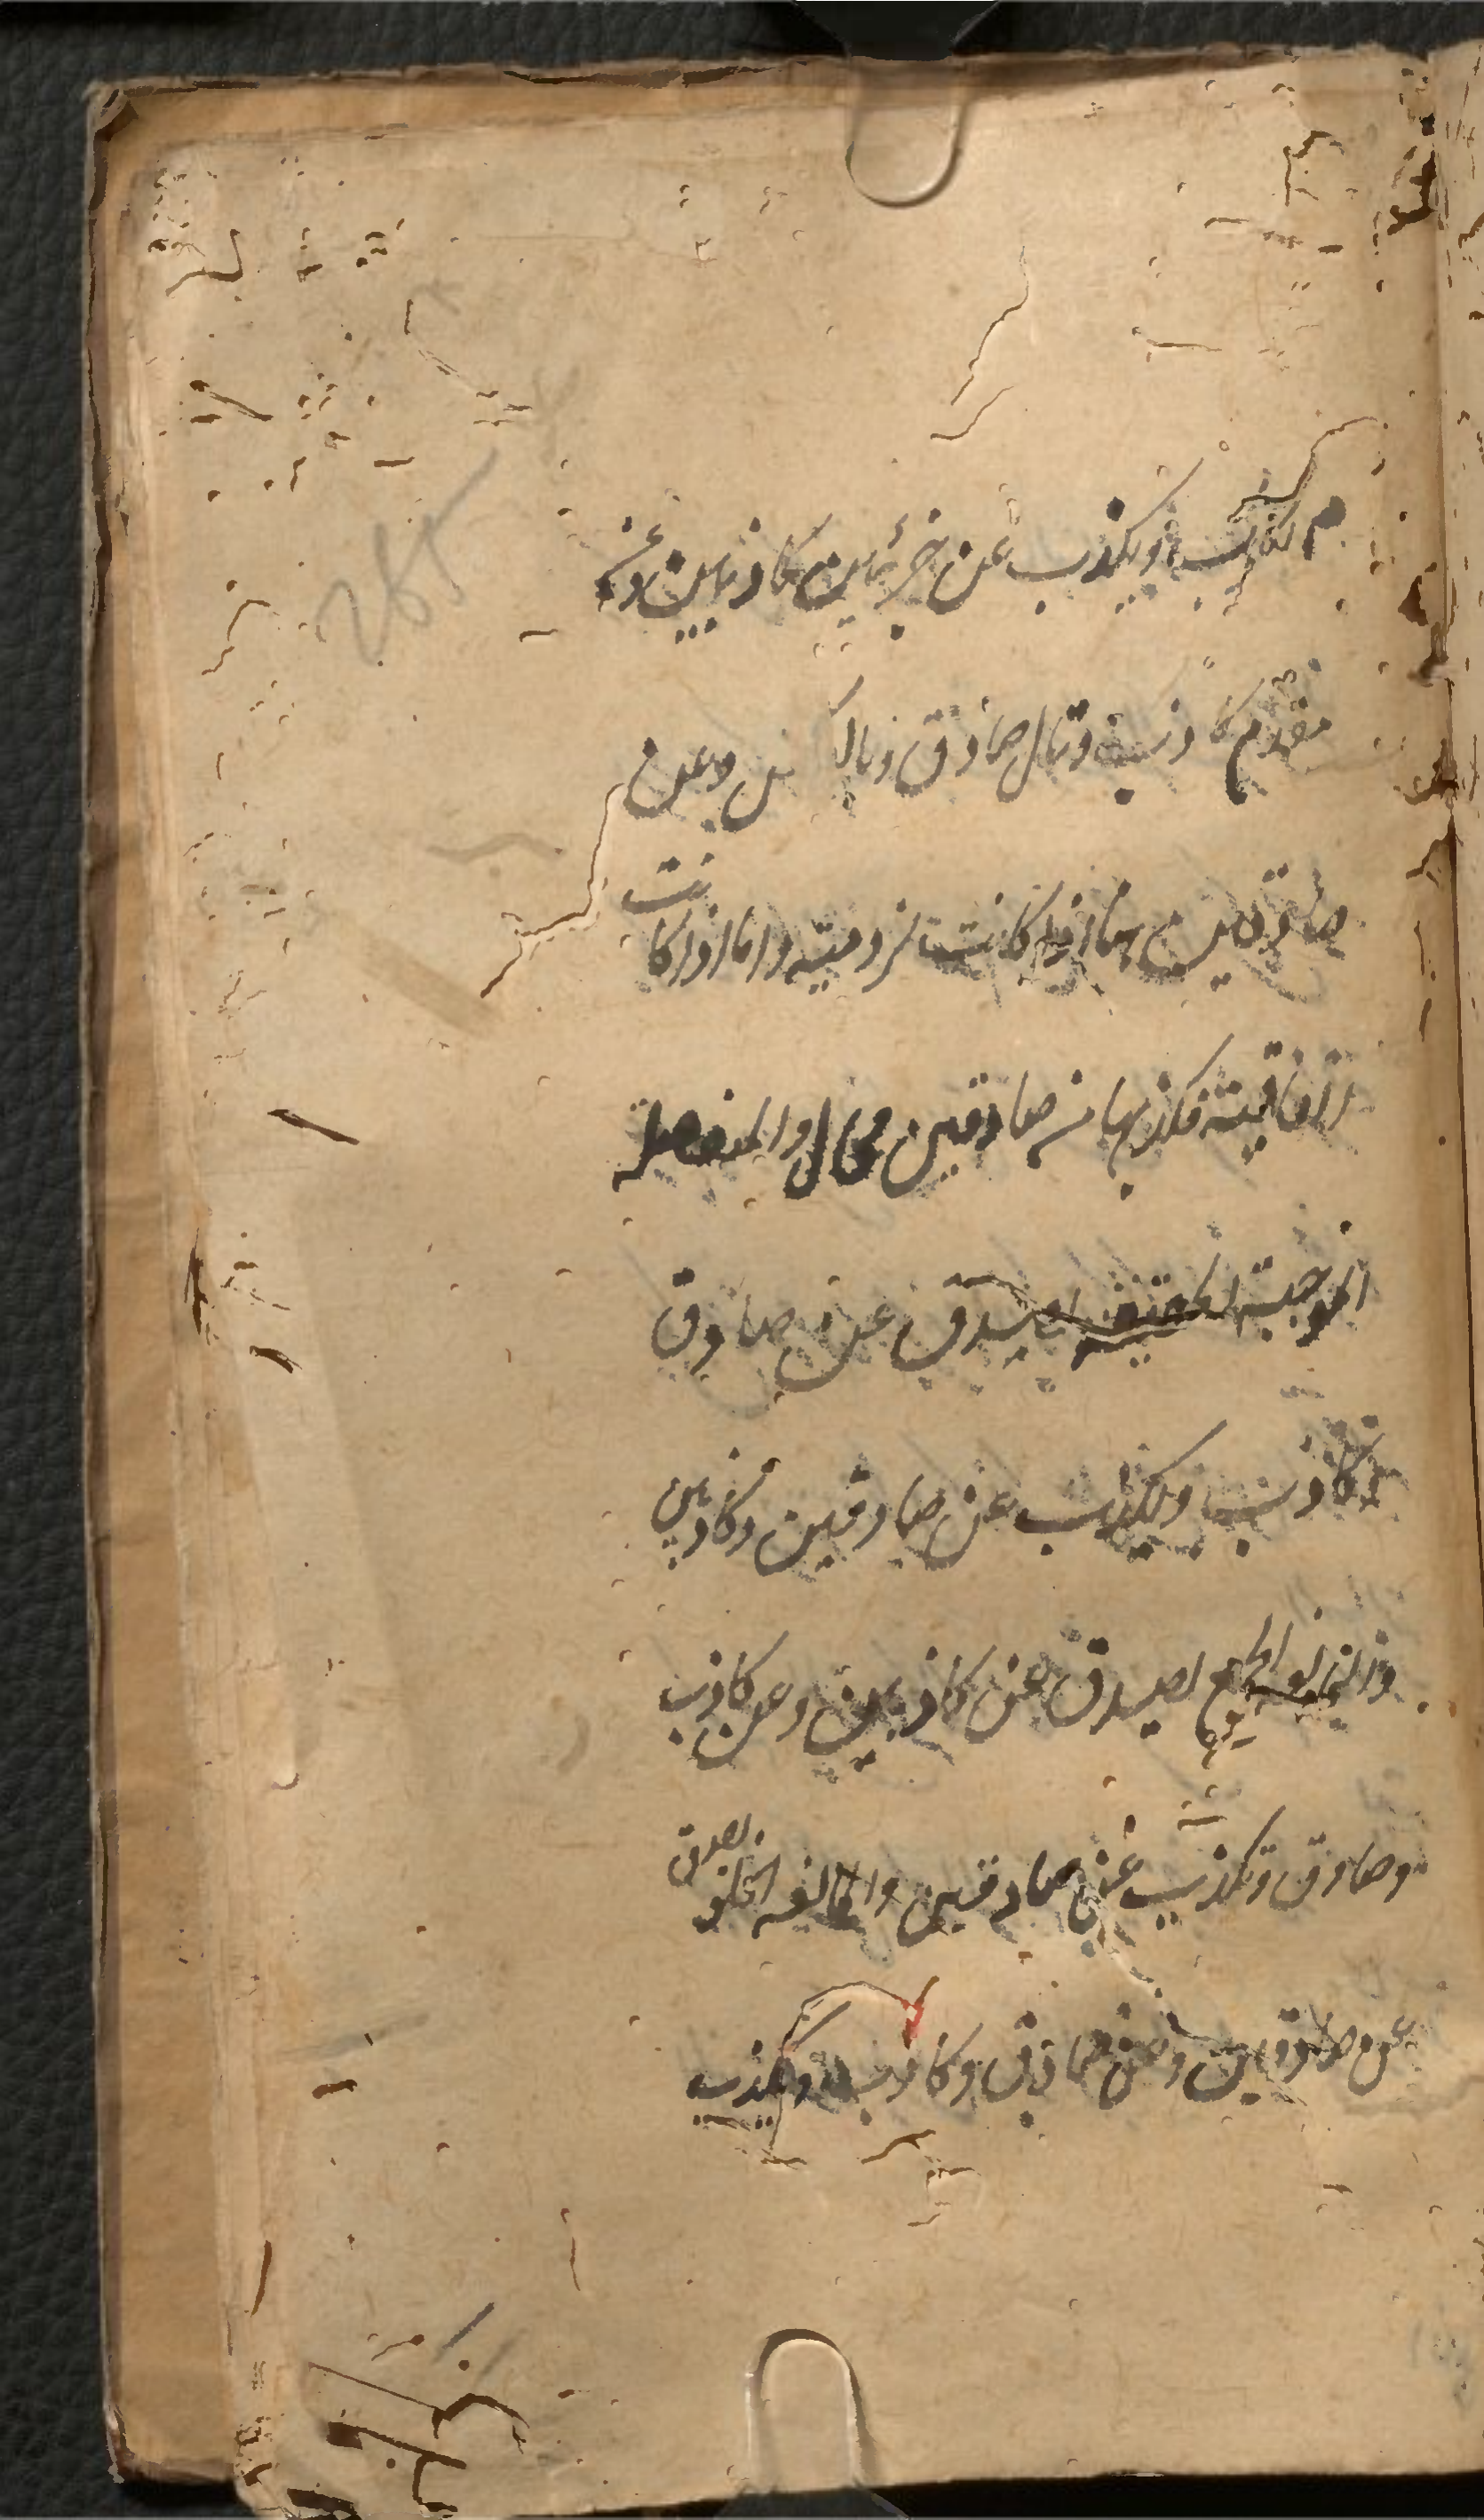 وتكذب عن جزئين كاذبين وعن
مقدم كاذب وتال صادق وبالعكس وعن
صادقين هذا اذا كانت لزومية واما اذا كانت
اتفاقية فكذبها من صادقين محال والمنفصلة
الموجبة الحقيقية تصدق عن صادق
وكاذب وتكذب عن صادقين وكاذبين
ومانعة الجمع تصدق عن كاذبين وعن كاذب
وصادق وتكذب عن صادقين ومانعة الخلو تصدق
عن صادقين وعن صادق وكاذب وتكذب